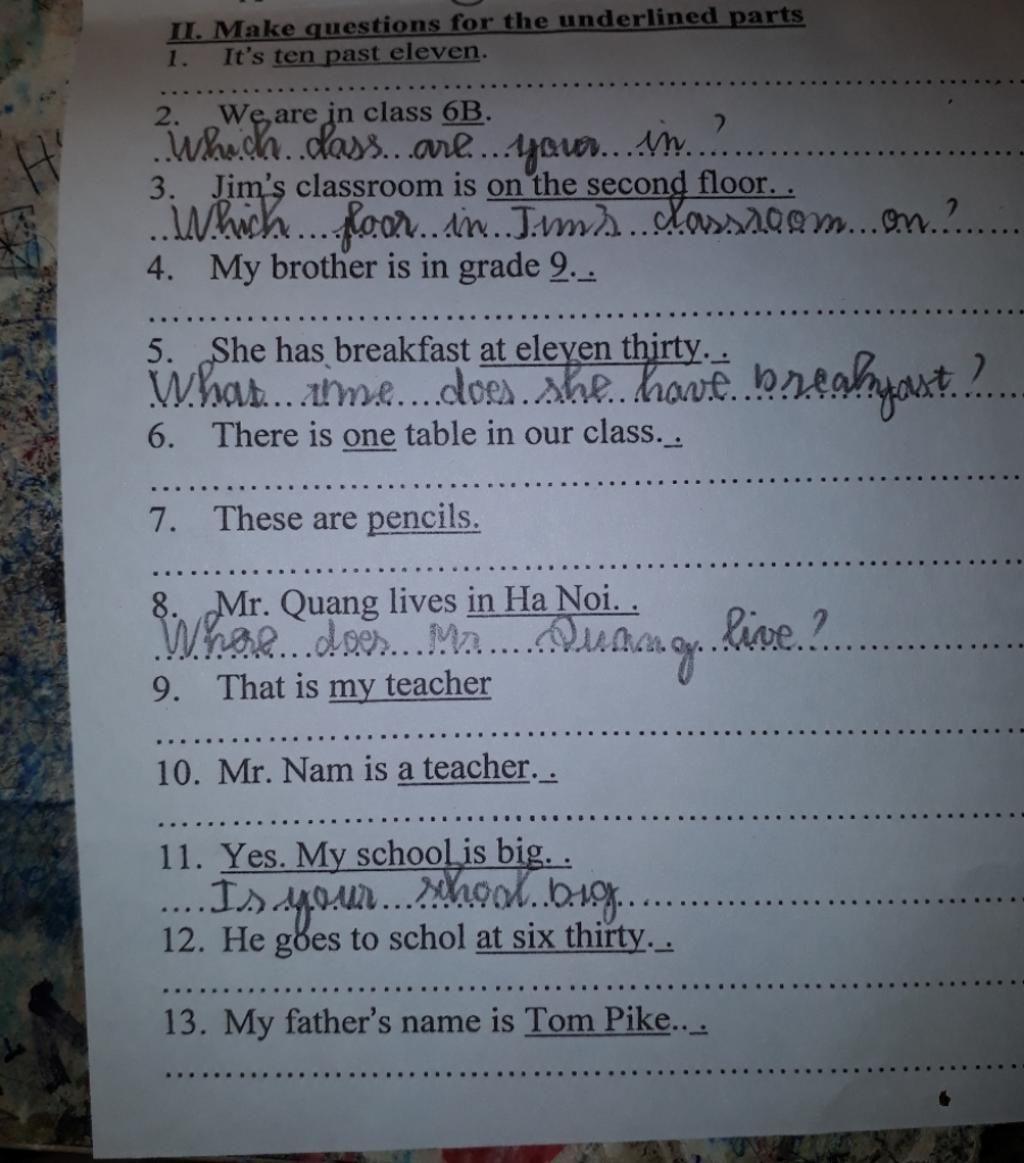 II. Make questions for the underlined parts
1. It's ten past eleven.
2. We are in class 6B.
Which class are your in ?
3. Jim's classroom is on the second floor. .
Which floor in Jim's classroom on ?
4. My brother is in grade 9. .
5. She has breakfast at eleven thirty. .
What time does she have breakfast ?
6. There is one table in our class. .
7. These are pencils.
8. Mr. Quang lives in Ha Noi. .
Where does Mr Quang live ?
9. That is my teacher
10. Mr. Nam is a teacher. .
11. Yes. My school is big. .
Is your school big
12. He goes to schol at six thirty. .
13. My father's name is Tom Pike.. .